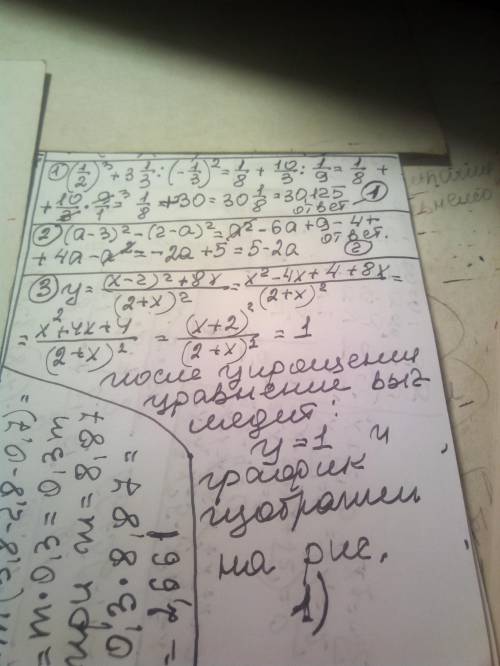 ① (1/2)³ + 3 1/3 : (-1/3)² = 1/8 + 10/3 : 1/9 = 1/8 +
+ 10/3 · 9/1 = 1/8 + 30 = 30 1/8 = 30,125
ответ ①
② (a-3)² - (2-a)² = a² - 6a + 9 - 4 +
+ 4a - a² = -2a + 5 = 5 - 2a
ответ. ②
③ y = (x-2)² + 8x / (2+x)² = x² - 4x + 4 + 8x / (2+x)² =
= x² + 4x + 4 / (2+x)² = (x+2)² / (2+x)² = 1
после упрощения
уравнение выг
лядит:
y = 1 и
график
изображен
на рис.
1)
= m · 0,3 = 0,3m
при m = 8,87
0,3 · 8,87 =
= 2,661